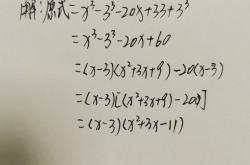 解:原式=x³-3³-20x+33+3³
=x³-3³-20x+60
=(x-3)(x²+3x+9)-20(x-3)
=(x-3)[(x²+3x+9)-20]
=(x-3)(x²+3x-11)